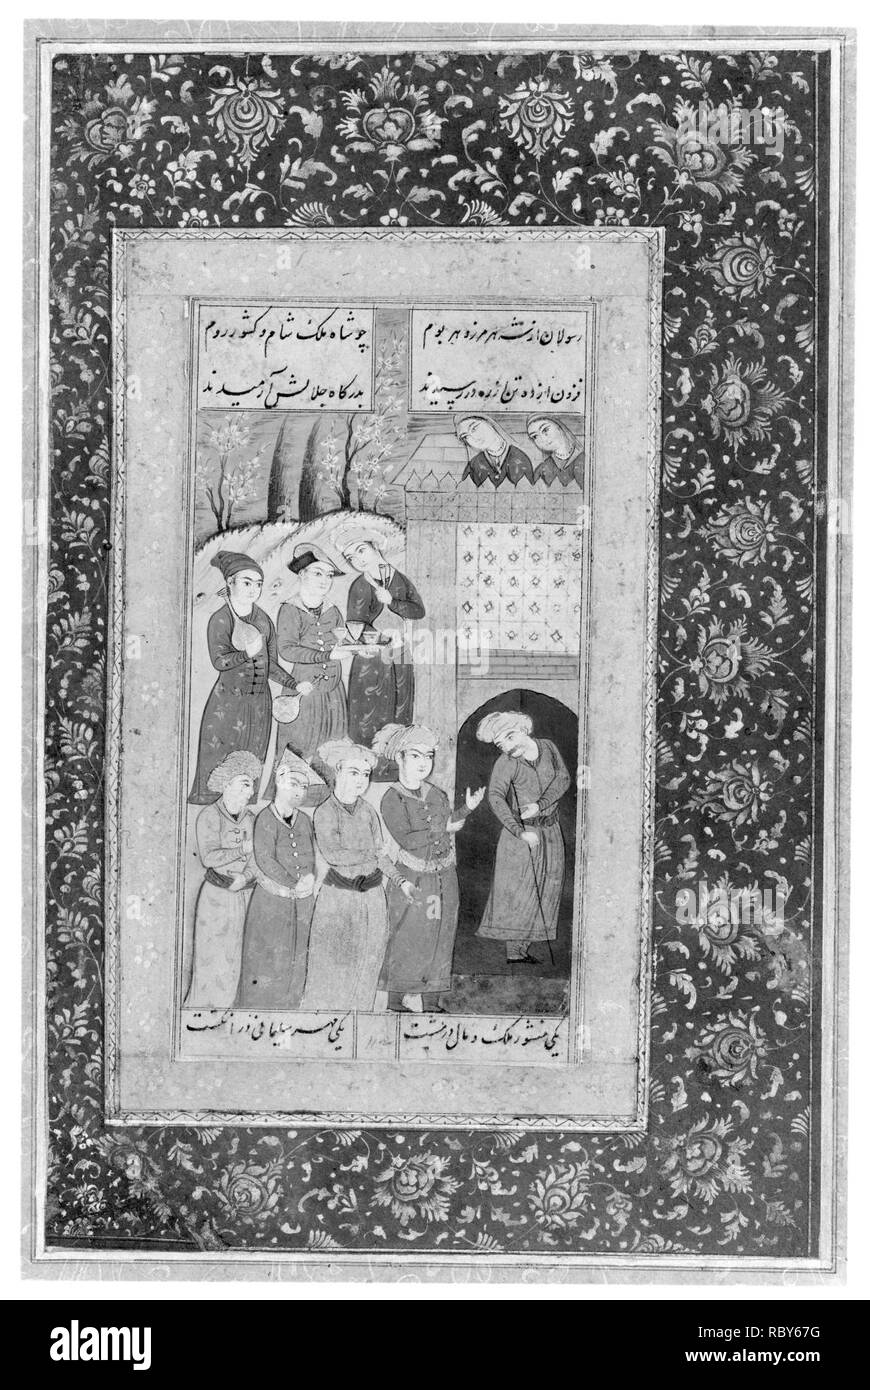 رسولان از شه هر مرز و هر بوم چو شاه ملک شام و کشور روم
فزون از ده تن از ره در رسیدند بدرکاه جلالش آرمیدند
یکی منشور ملک و مال در مشت یکی مهر سلیمانی در انکشت
alamy
alamy
Image ID: RBY67G
www.alamy.com